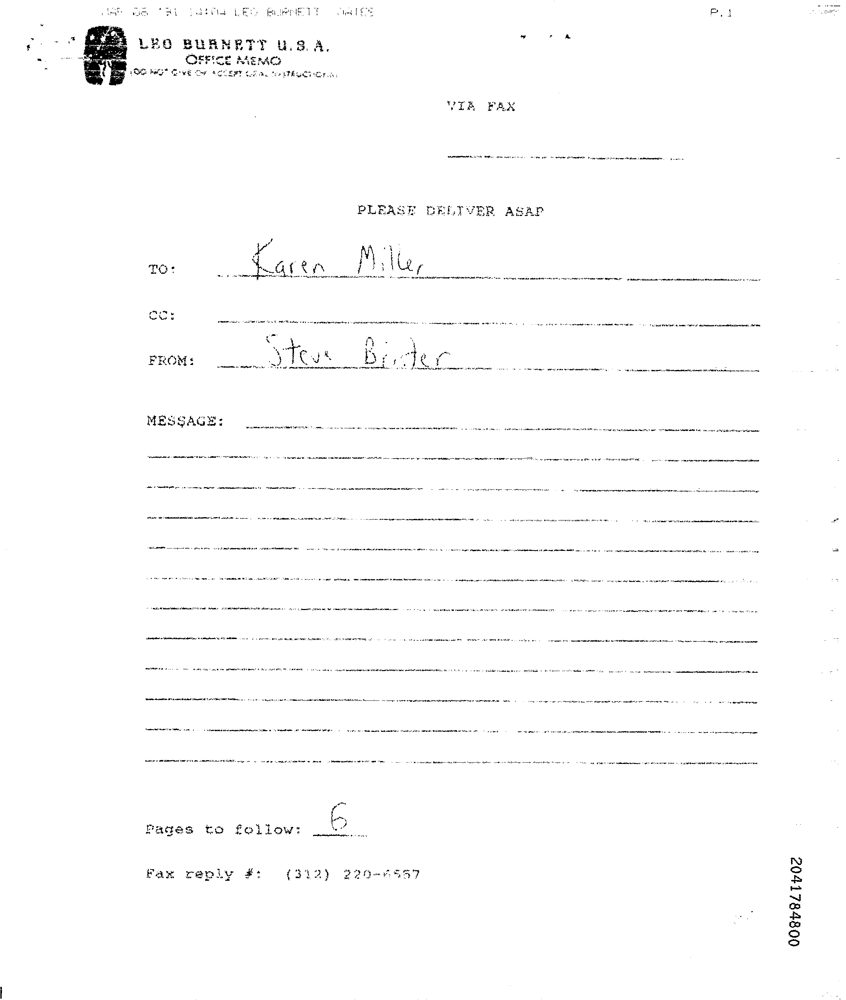 '91 LEO BURNETT P.1
LEO BURNETT U.S.A.
OFFICE MEMO
(DO NOT GIVE OR ACCEPT ORAL INSTRUCTIONS)
VIA FAX
PLEASE DELIVER ASAP
TO: Karen Miller
CC:
FROM: Steve
MESSAGE:
Pages to follow: 6
Fax reply #: (312)
2041784800